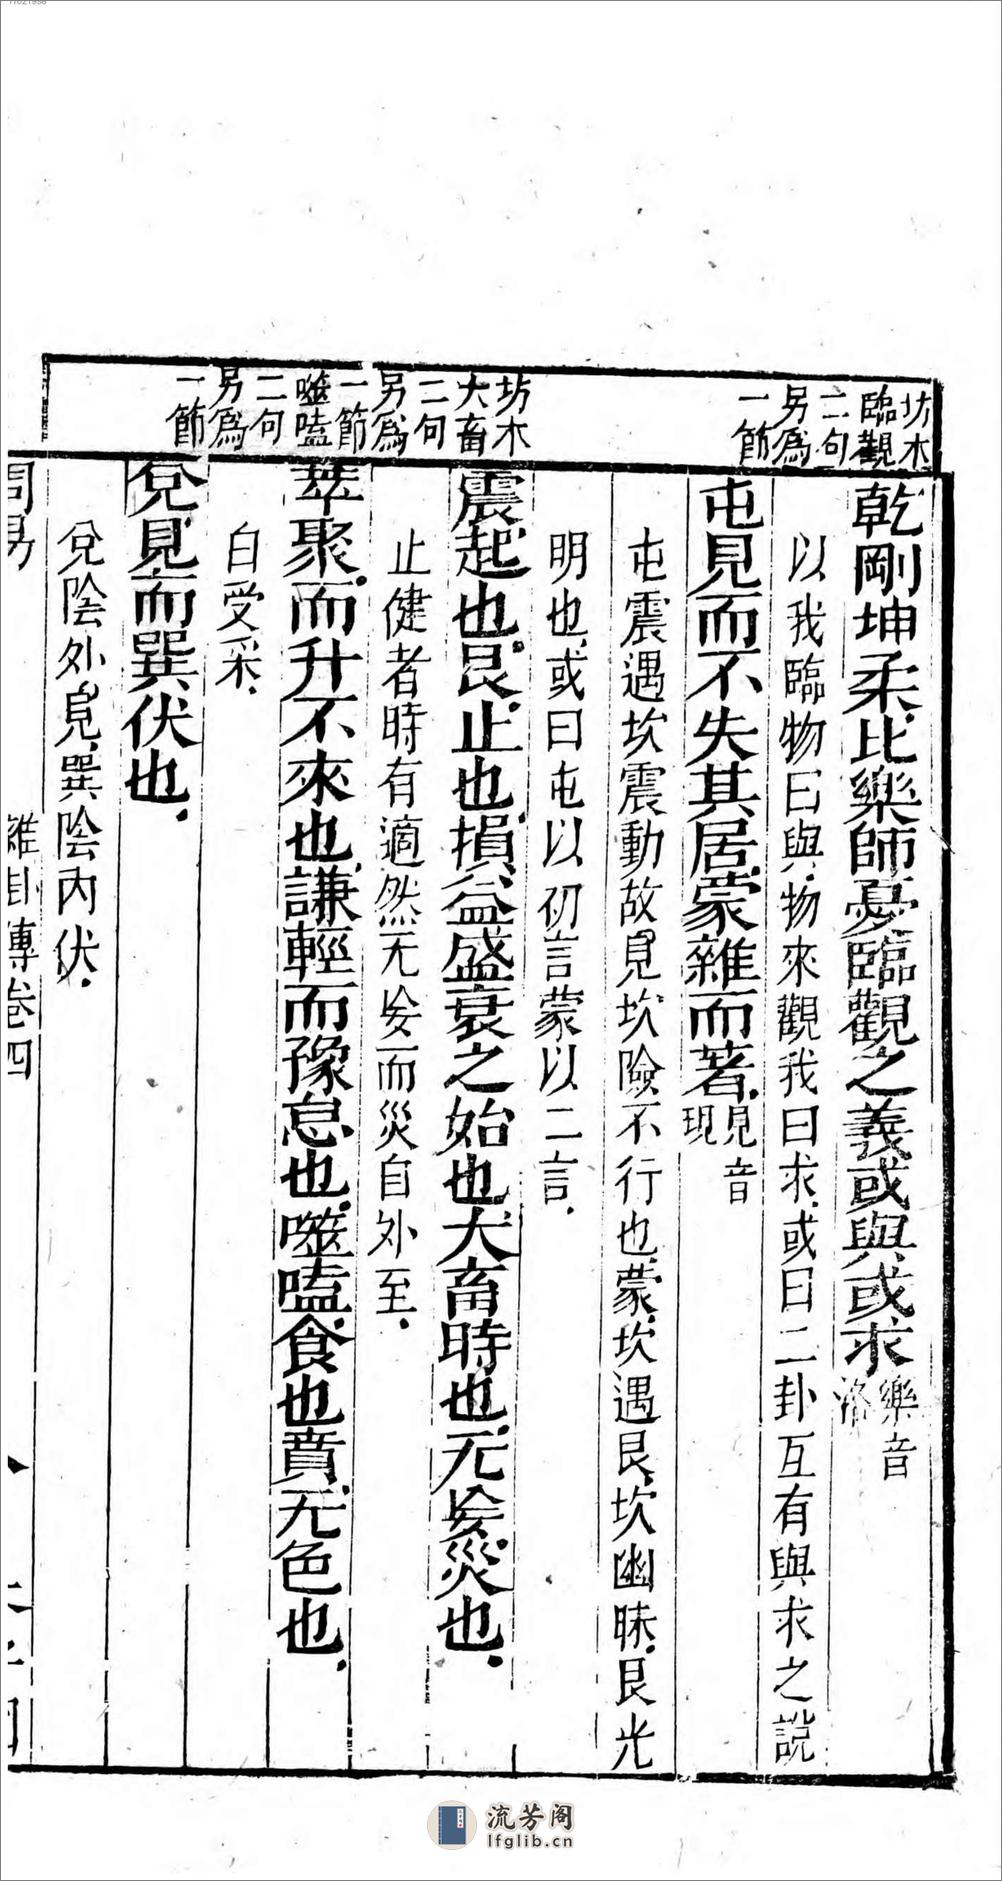 坊本
臨觀
二句
另爲
一節
坊本
大畜
二句
另爲
一節
噬嗑
二句
另爲
一節
乾剛坤柔比樂師憂臨觀之義或與或求樂音洛
以我臨物曰與物來觀我曰求或曰二卦互有與求之說
屯見而不失其居蒙雜而著見音現
屯震遇坎震動故見坎險不行也蒙坎遇艮坎幽昧艮光
明也或曰屯以初言蒙以二言
震起也艮止也損益盛衰之始也大畜時也无妄災也
止健者時有適然无妄而災自外至
萃聚而升不來也謙輕而豫怠也噬嗑食也賁无色也
白受采
兌見而巽伏也
兌陰外見巽陰內伏
周易
雜卦傳卷四
流芳阁
lfglib.cn